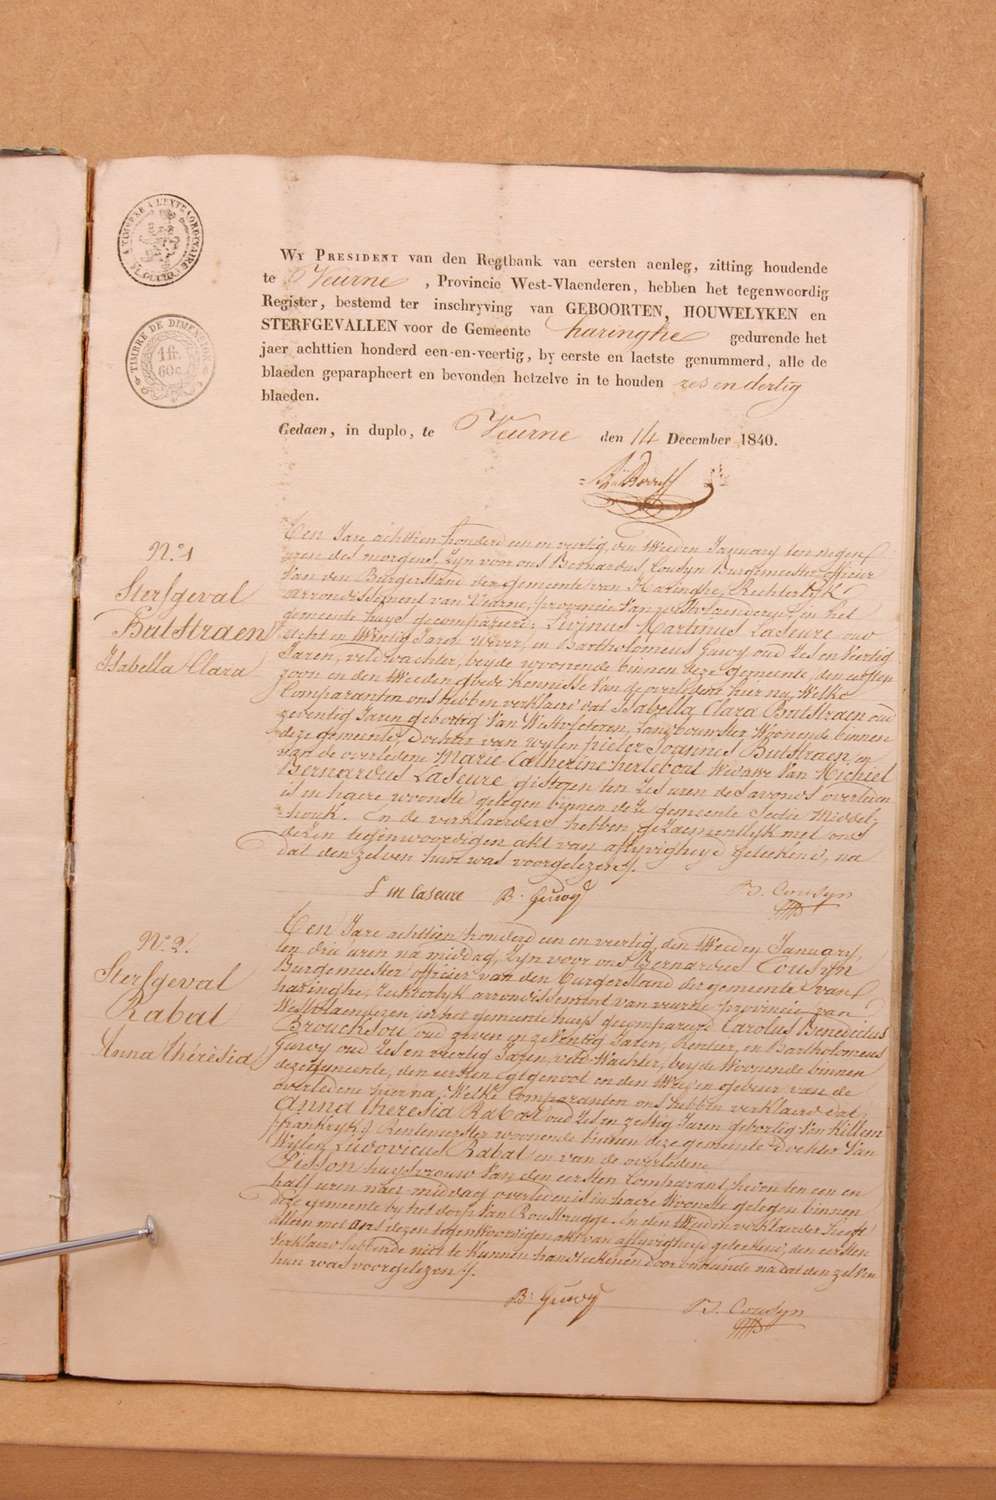 TIMBRE A L'EXTRAORDINAIRE
TIMBRE DE DIMENSION
1 fr.
60 c.
WY PRESIDENT van den Regtbank van eersten aenleg, zitting houdende
te Veurne, Provincie West-Vlaenderen, hebben het tegenwoordig
Register, bestemd ter inschryving van GEBOORTEN, HOUWELYKEN en
STERFGEVALLEN voor de Gemeente haringhe gedurende het
jaer achttien honderd een-en-veertig, by eerste en laetste genummerd, alle de
blaeden geparapheert en bevonden hetzelve in te houden zes en dertig
blaeden.
Gedaen, in duplo, te Veurne den 14 December 1840.
N.° 1
Sterfgeval
Butstraen
Isabella Clara
Een Jare achttien honderd een en veertig, den tweeden January ten negen
uren des morgens, zyn voor ons Bernardus Cousyn Burgemeester officier
van den Burgerstand der gemeente van Haringhe, Rechterlyk
arrondissement van Veurne, provincie van westvlaenderen, in het
gemeente huys gecompareerd: Livinus Martinus Laseure oud
acht en twintig Jaren wever, en Bartholomeus Guwy oud zes en veertig
Jaren, veld wachter, beyde woonende binnen deze gemeente, den eersten
zoon en den tweeden gebuer kennisse van de overledene hier na, Welke
Comparanten ons hebben verklaerd dat Isabella Clara Butstraen oud
zeventig Jaren geboortig van Westvleteren, Landbouwster, Woonende binnen
deze gemeente Dochter van wylen pieter Joannes Butstraen, en
van de overledene Marie Catherine herleboul Weduwe van Michiel
Bernardus Laseure, gisteren ten zes uren des avonds overleden
is in haere wooninge gelegen binnen deze gemeente Sectie Middel-
houk. En de verklaerders hebben gezaementlyk met ons
dezen tegenwoordigen akt van aflyvigheyd geteekend, na
dat den zelven hun was voorgelezen.
L m laseure B. Guwy B. Cousyn
N.° 2.
Sterfgeval
Rabat
Anna thérésia
Een Jare achttien honderd een en veertig, den tweeden January,
ten drie uren na middag, zyn voor ons Bernardus Cousyn
Burgemeester officier van den burgerstand der gemeente van
haringhe, rechterlyk arrondissement van veurne provincie van
Westvlaenderen in het gemeente huys gecompareerd Carolus Benedictus
Brouckson oud zeven en zeventig Jaren, Rentier, en Bartholomeus
Guwy oud zes en veertig Jaren, veld-Wachter, beyde Woonende binnen
deze gemeente, den eersten Egtgenoot en den tweeden gebuer van de
overledene hier na; Welke Comparanten ons hebben verklaerd dat
Anna theresia Rabat oud zes en zestig Jaren geboortig van killem
(frankryk) Rentenierster woonende binnen deze gemeente Dochter van
Wylen Ludovicus Rabat en van de overledene
Pisson huysvrouw van den eersten Comparant, heden ten een en
half uren naer middag overleden is in haere Wooninge gelegen binnen
deze gemeente by het dorp van Rousbrugge. En den tweeden verklaerder heeft
alleen met ons dezen tegenwoordigen akt van aflyvigheyd geteekend; den eersten
verklaerd hebbende niet te kunnen handteekenen door na dat den zelven
hun was voorgelezen.
B. Guwy B. Cousyn